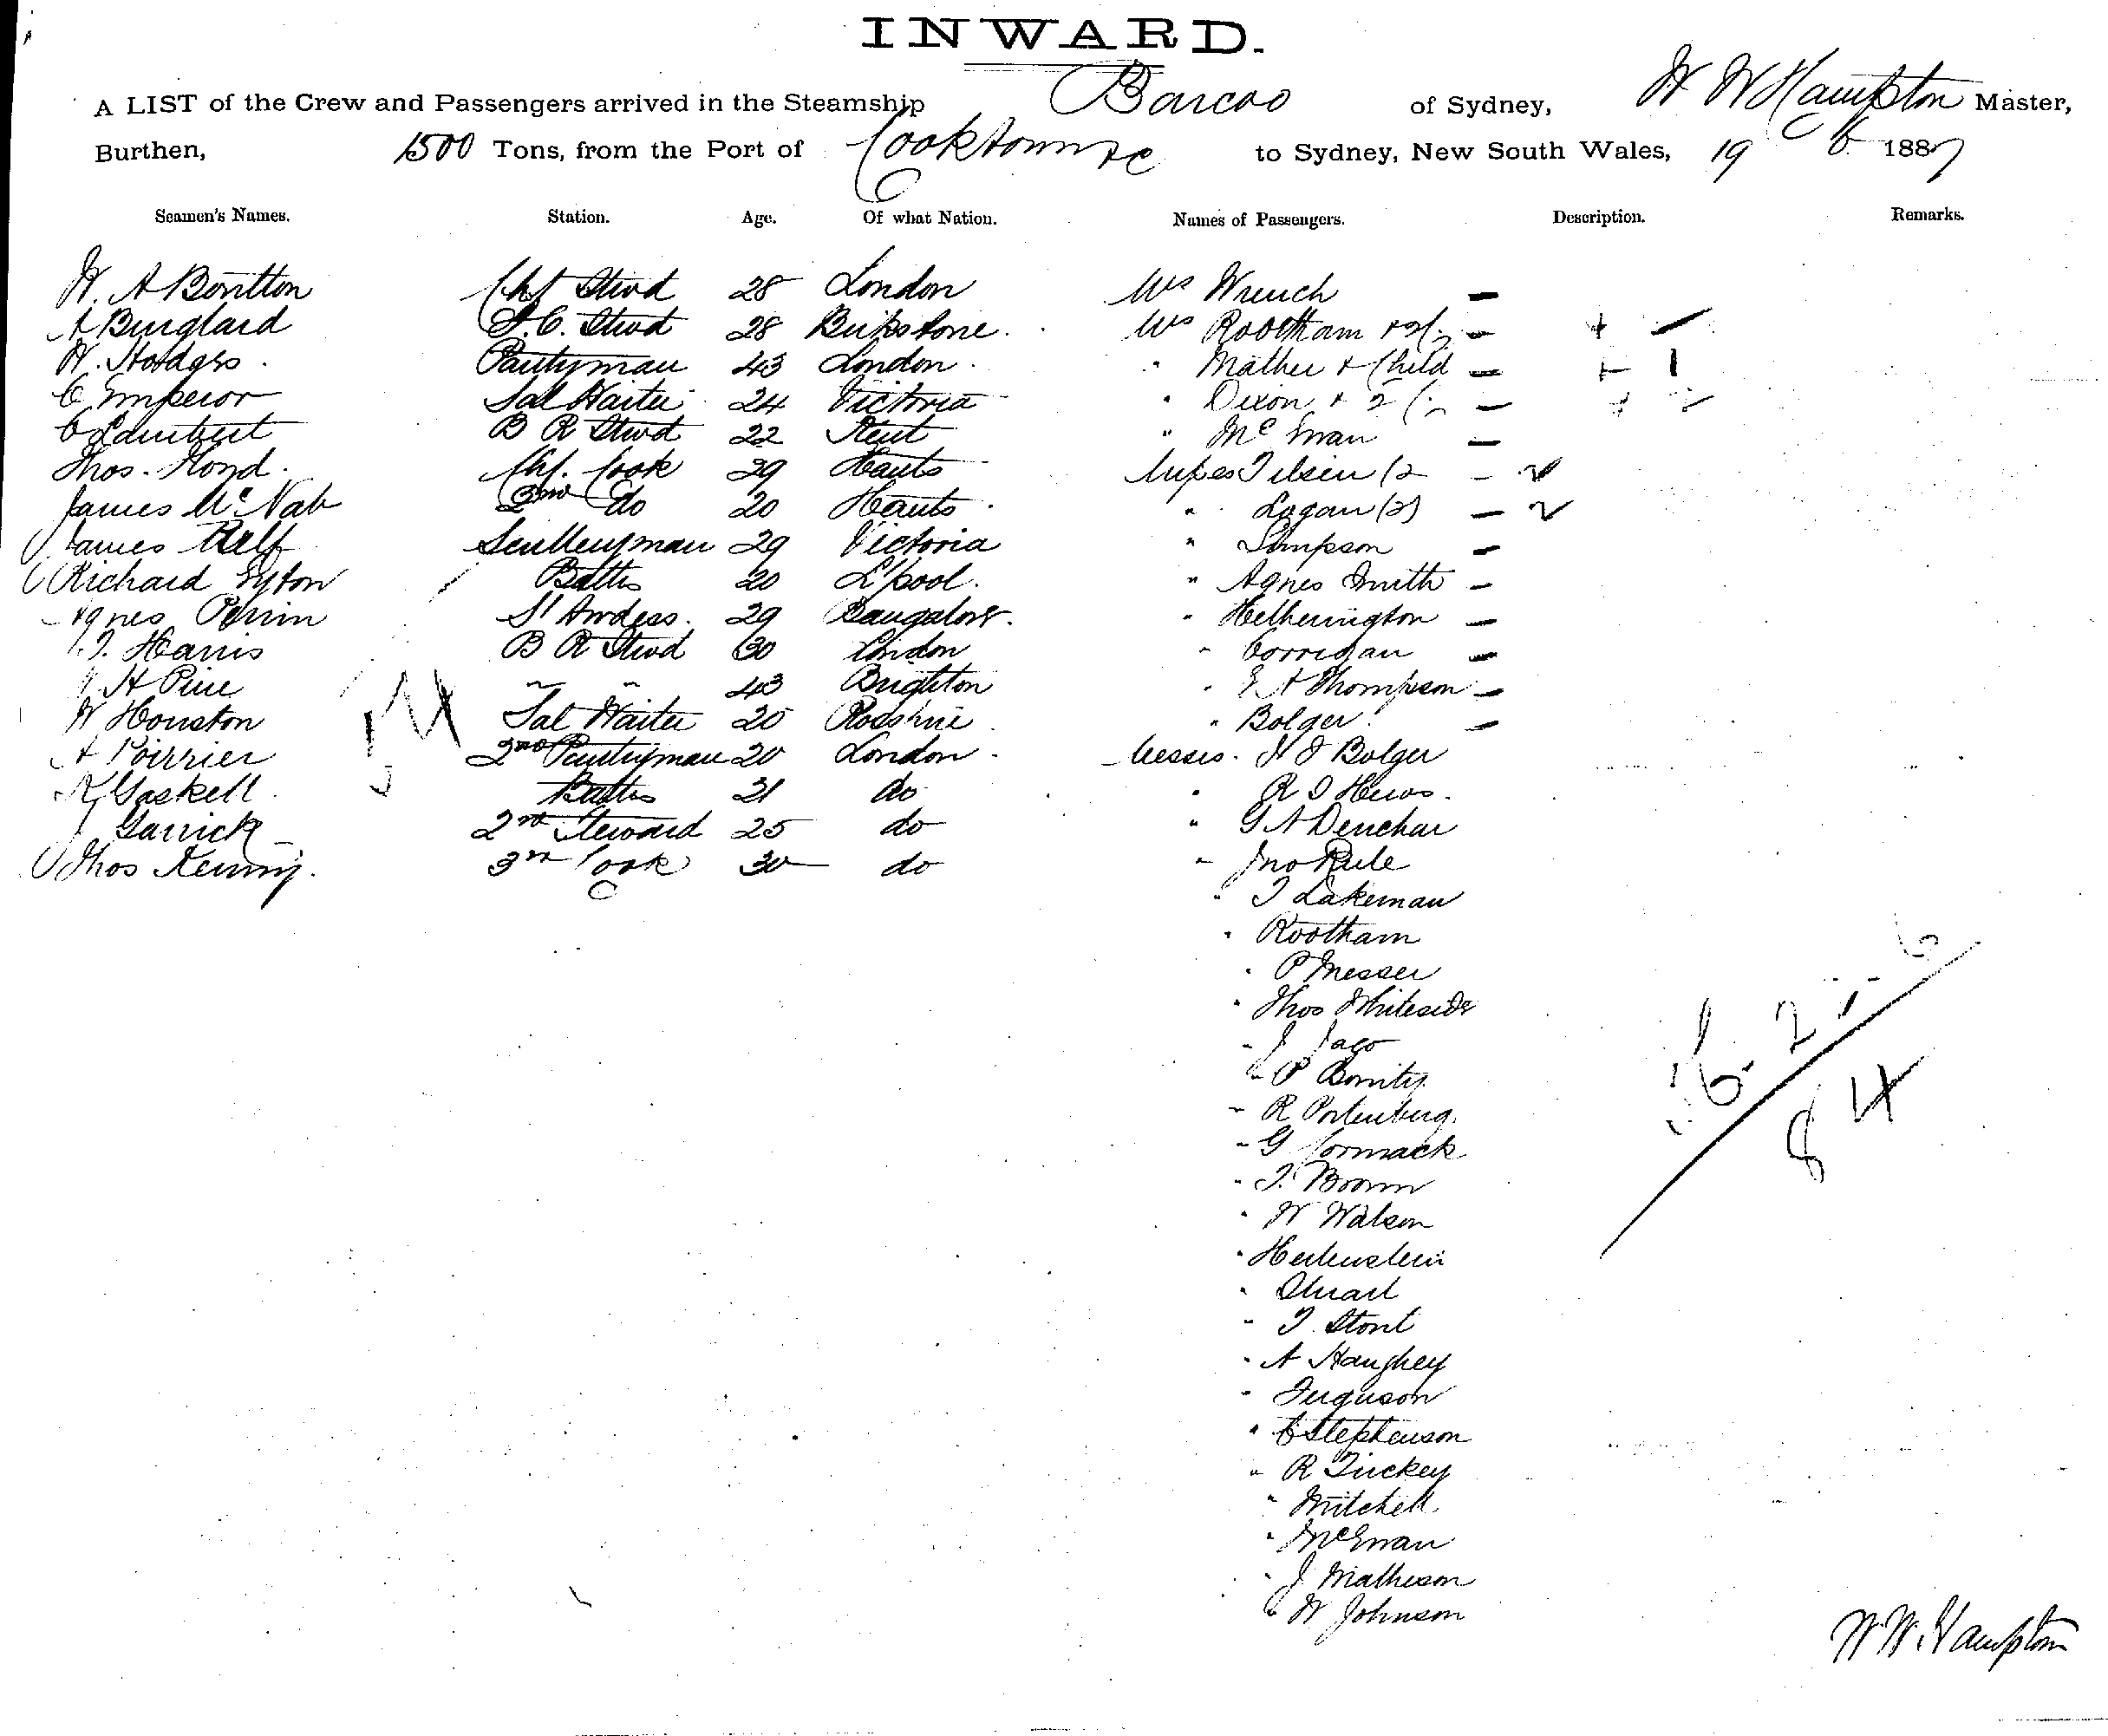 INWARD.
A LIST of the Crew and Passengers arrived in the Steamship Barcoo of Sydney, W W Hampton Master,
Burthen, 1500 Tons, from the Port of Cooktown &c to Sydney, New South Wales, 19 6 1887
Seamen's Names. Station. Age. Of what Nation. Names of Passengers. Description. Remarks.
W. A Boutton Chf Stwd 28 London Mrs Wrench
A Burglard F.C. Stwd 28 Mrs Rootham
W. Hodges Pantryman 43 London " Mather & Child
C Emperor Sal Waiter 24 Victoria " Dixon & 2
C Lambert B R Stwd 22 Kent " McEwan
Thos. Hoyd. Chf. Cook 29 Hants Misses (2
James McNab 2nd do 20 Hants " Logan (2)
James Relf Scullerymau 29 Victoria " Simpson
Richard Syton Baths 20 L'pool. " Agnes Smith
Agnes Perrin St Ardess. 29 Bangalore. " Hetherington
T. Harris B R Stwd 30 London " Corrigan
H Pine " " 43 Brighton " E A Thompson
W Houston Sal Waiter 20 Rosshire " Bolger
A Poirrier 2nd Pantryman 20 London Messrs. H J Bolger
K Gaskell Baths 31 do " R J Hews.
J Garrick 2nd Steward 25 do " G A Denchar
Thos Kenny. 3rd Cook 30 do " Jno Rule
" T Lakeman
" Rootham
" P Messer
" Thos Whiteside
" J Jago
" P
" R Portenburg.
" G Cormack
" T. Brown
" W Watson
" Hertenstein
" Stuart
" T. Stout
" A Haughey
" Ferguson
" C Stephenson
" R Tuckey
" Mitchell
" McEwan
" J Matheson
" W Johnson
84
W. W. Hampton